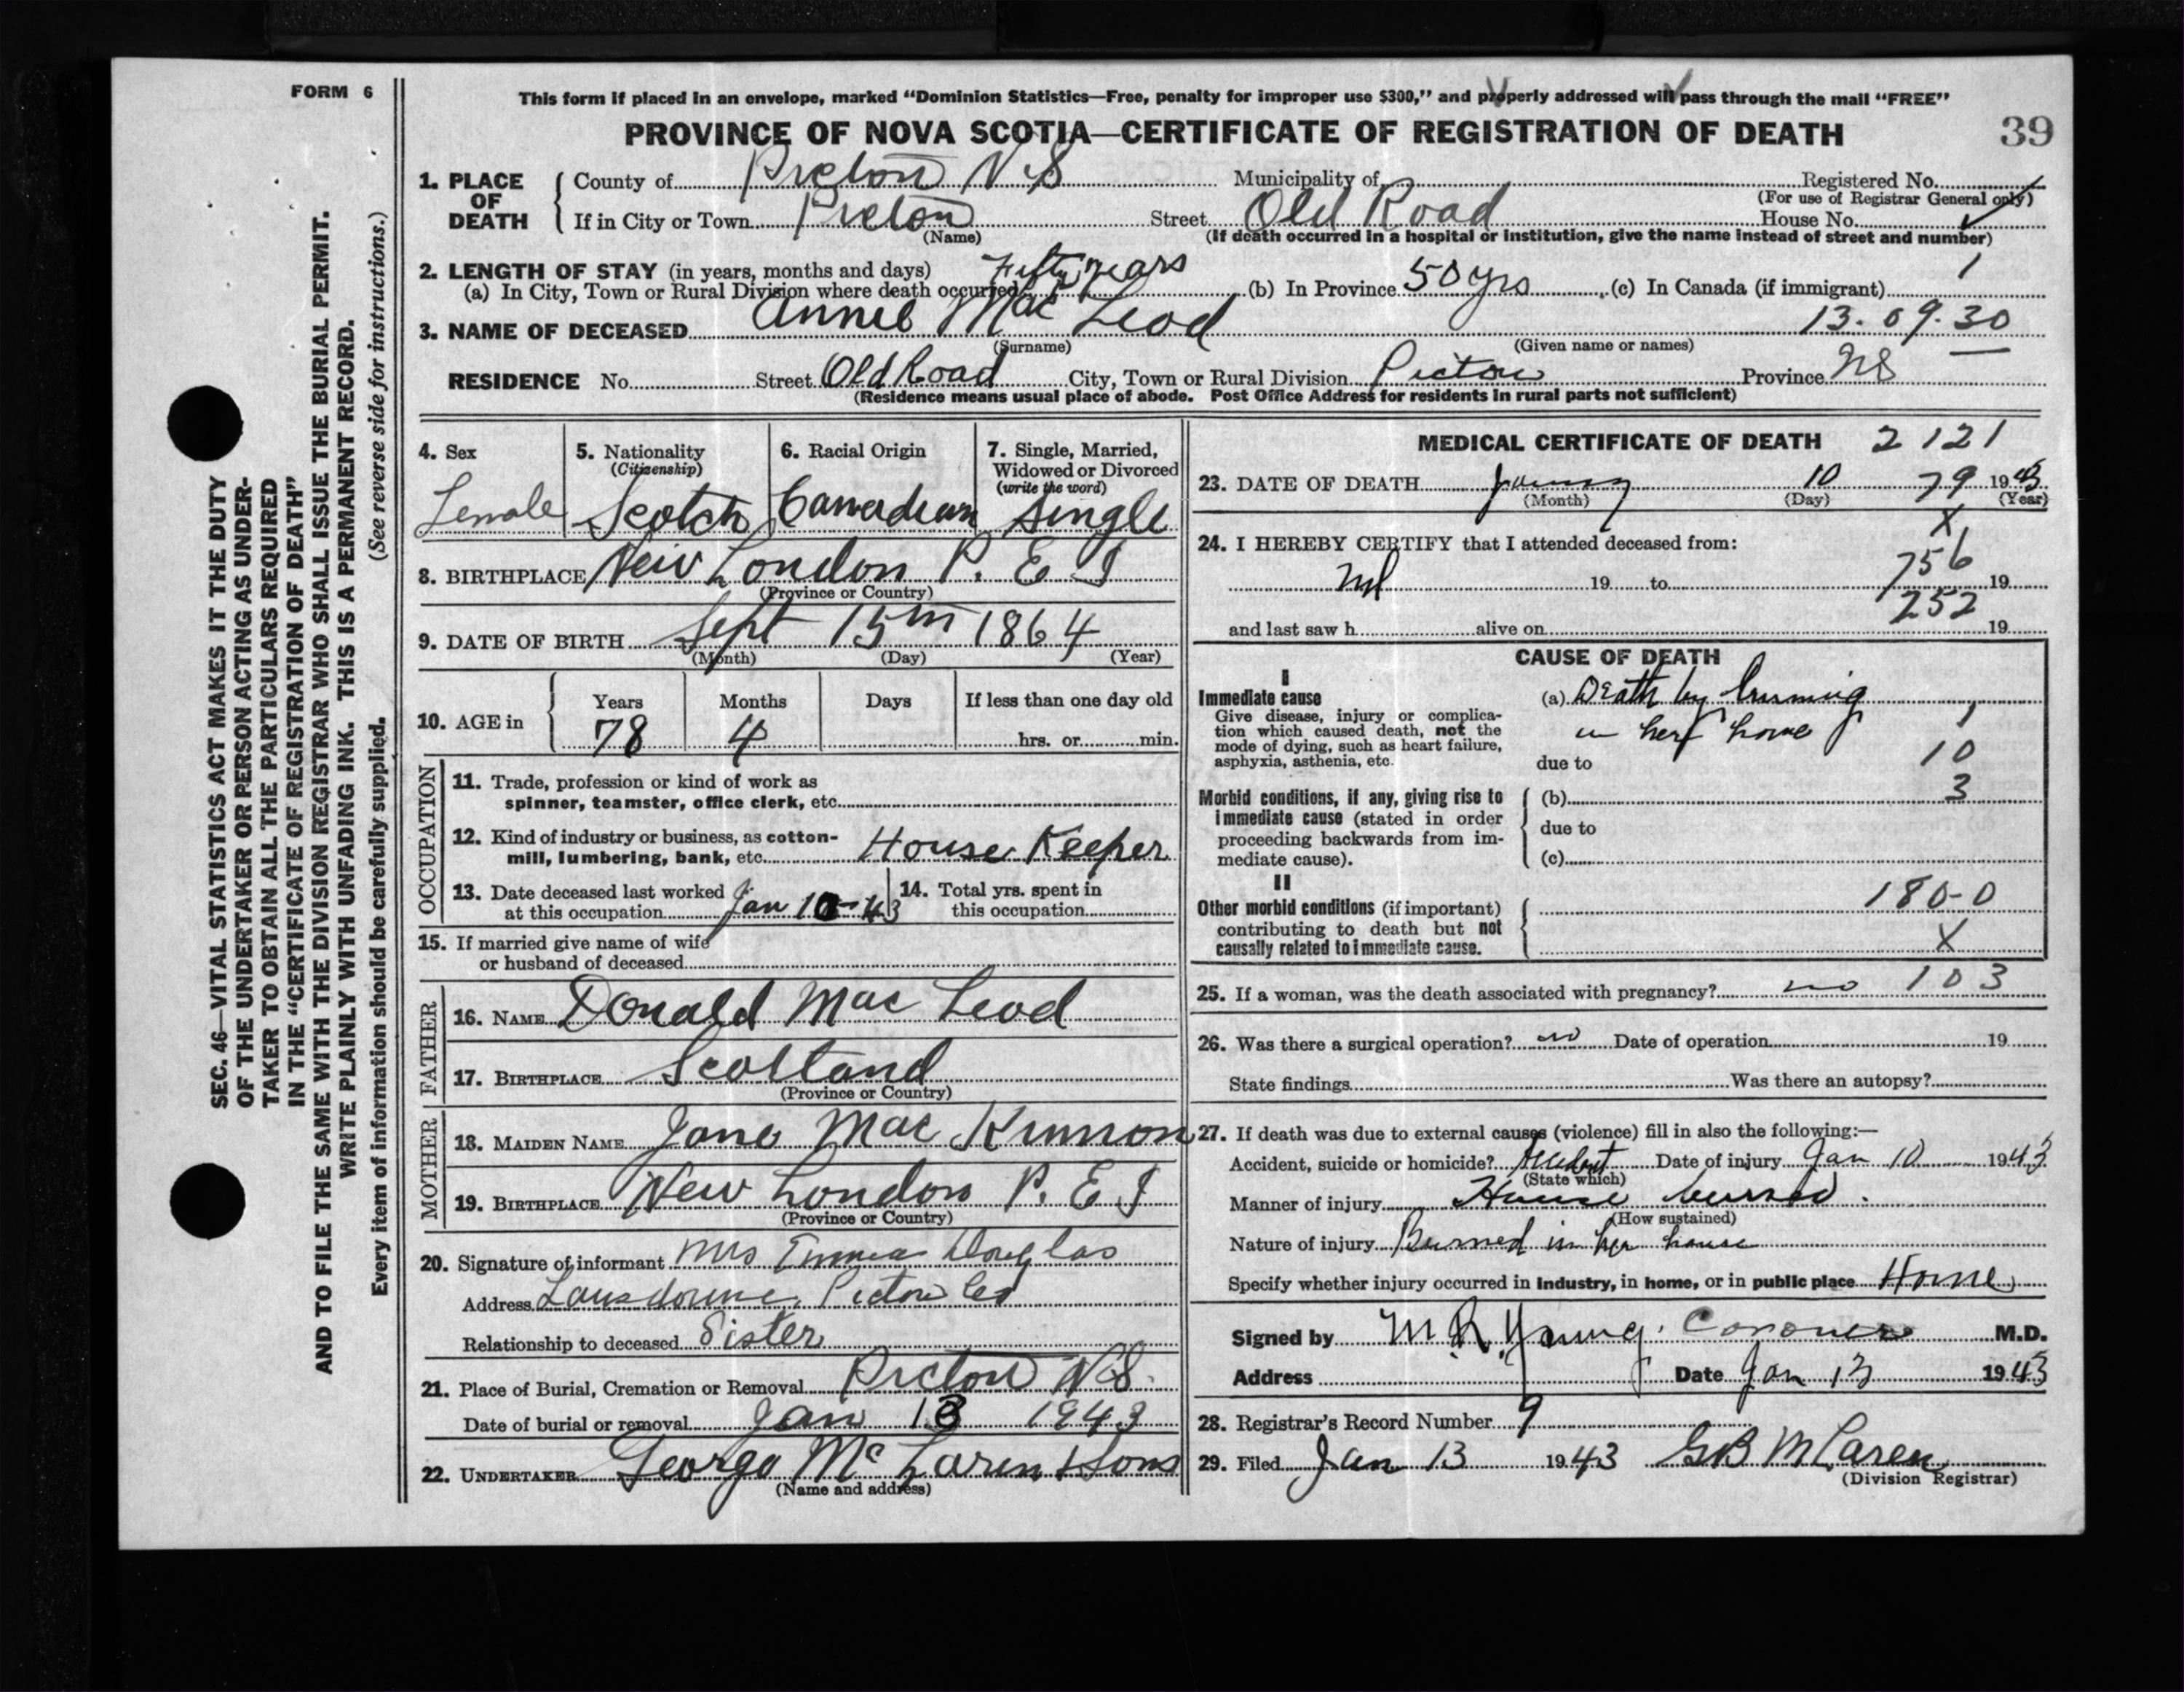 FORM 6
This form if placed in an envelope, marked “Dominion Statistics—Free, penalty for improper use $300,” and properly addressed will pass through the mail “FREE”
PROVINCE OF NOVA SCOTIA—CERTIFICATE OF REGISTRATION OF DEATH 39
SEC. 46—VITAL STATISTICS ACT MAKES IT THE DUTY
OF THE UNDERTAKER OR PERSON ACTING AS UNDER-
TAKER TO OBTAIN ALL THE PARTICULARS REQUIRED
IN THE “CERTIFICATE OF REGISTRATION OF DEATH”
AND TO FILE THE SAME WITH THE DIVISION REGISTRAR WHO SHALL ISSUE THE BURIAL PERMIT.
WRITE PLAINLY WITH UNFADING INK. THIS IS A PERMANENT RECORD.
Every item of information should be carefully supplied. (See reverse side for instructions.)
1. PLACE OF DEATH
County of Pictou N.S Municipality of Registered No.
(For use of Registrar General only)
If in City or Town Pictou Street Old Road House No.
(Name) (If death occurred in a hospital or institution, give the name instead of street and number)
2. LENGTH OF STAY (in years, months and days)
(a) In City, Town or Rural Division where death occurred Fifty years (b) In Province 50 yrs (c) In Canada (if immigrant) 1
3. NAME OF DECEASED Annie Mac Leod 13.09.30
(Surname) (Given name or names)
RESIDENCE No. Street Old Road City, Town or Rural Division Pictou Province NS
(Residence means usual place of abode. Post Office Address for residents in rural parts not sufficient)
4. Sex
Female
5. Nationality
(Citizenship)
Scotch
6. Racial Origin
Canadian
7. Single, Married,
Widowed or Divorced
(write the word)
Single
8. BIRTHPLACE New London P. E I
(Province or Country)
9. DATE OF BIRTH Sept 15th 1864
(Month) (Day) (Year)
10. AGE in
Years Months Days If less than one day old
78 4 hrs. or min.
OCCUPATION
11. Trade, profession or kind of work as
spinner, teamster, office clerk, etc.
12. Kind of industry or business, as cotton-
mill, lumbering, bank, etc. House Keeper
13. Date deceased last worked
at this occupation Jan 10-43
14. Total yrs. spent in
this occupation
15. If married give name of wife
or husband of deceased
FATHER
16. NAME Donald Mac Leod
17. BIRTHPLACE Scotland
(Province or Country)
MOTHER
18. MAIDEN NAME Jane Mac Kinnon
19. BIRTHPLACE New London P. E I
(Province or Country)
20. Signature of informant Mrs Emma Douglas
Address Lansdowne, Pictou Co
Relationship to deceased Sister
21. Place of Burial, Cremation or Removal Pictou N.S.
Date of burial or removal Jan 13 1943
22. UNDERTAKER George Mc Laren & Sons
(Name and address)
MEDICAL CERTIFICATE OF DEATH 2121
23. DATE OF DEATH 10 79 1943
(Month) (Day) (Year)
X
24. I HEREBY CERTIFY that I attended deceased from:
19 to 756 19
252
and last saw h alive on 19
CAUSE OF DEATH
I
Immediate cause
Give disease, injury or complica-
tion which caused death, not the
mode of dying, such as heart failure,
asphyxia, asthenia, etc.
(a) Death by burning
in her home 1
due to 10
Morbid conditions, if any, giving rise to
immediate cause (stated in order
proceeding backwards from im-
mediate cause).
(b) 3
due to
(c)
II
Other morbid conditions (if important)
contributing to death but not
causally related to immediate cause.
180-0
X
25. If a woman, was the death associated with pregnancy? no 103
26. Was there a surgical operation? no Date of operation 19
State findings Was there an autopsy?
27. If death was due to external causes (violence) fill in also the following:—
Accident, suicide or homicide? Accident Date of injury Jan 10 1943
(State which)
Manner of injury House burned.
(How sustained)
Nature of injury Burned in her house
Specify whether injury occurred in industry, in home, or in public place Home
Signed by M R Young. Coroner M.D.
Address Date Jan 13 1943
28. Registrar’s Record Number 9
29. Filed Jan 13 1943 GB McLaren
(Division Registrar)